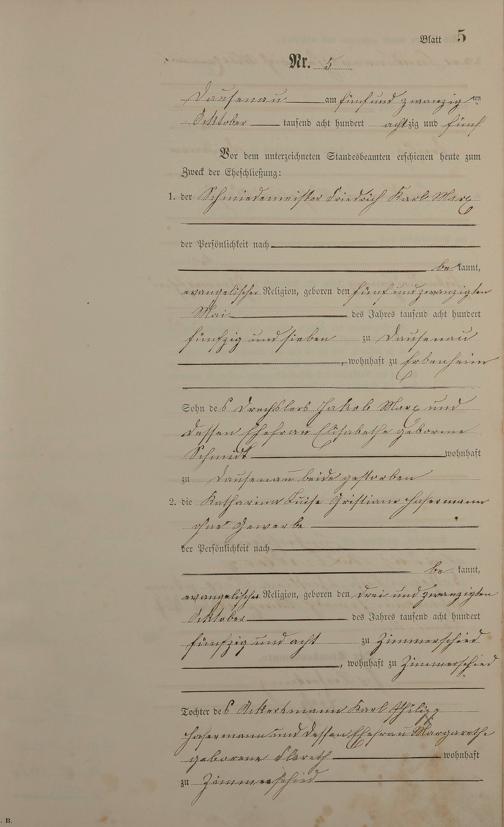 Blatt 5
Nr. 5
Dausenau am fünf und zwanzigsten
Oktober tausend acht hundert achtzig und fünf
Vor dem unterzeichneten Standesbeamten erschienen heute zum
Zweck der Eheschließung:
1. der Schmiedemeister Friedrich Karl Marx
der Persönlichkeit nach
be kannt,
evangelischer Religion, geboren den fünf und zwanzigsten
Mai des Jahres tausend acht hundert
fünfzig und sieben zu Dausenau
, wohnhaft zu Erbenheim
Sohn des Drechslers Jakob Marx und
dessen Ehefrau Elisabethe geborene
Schmidt wohnhaft
zu Dausenau beide gestorben
2. die Katharina Luise Christiane Hasermann
ohne Gewerbe
der Persönlichkeit nach
be kannt,
evangelischer Religion, geboren den drei und zwanzigsten
Oktober des Jahres tausend acht hundert
fünfzig und acht zu Zimmerschied
, wohnhaft zu Zimmerschied
Tochter des Ackermann Karl Philipp
Hasermann und dessen Ehefrau Margarethe
geborene wohnhaft
zu Zimmerschied
B.